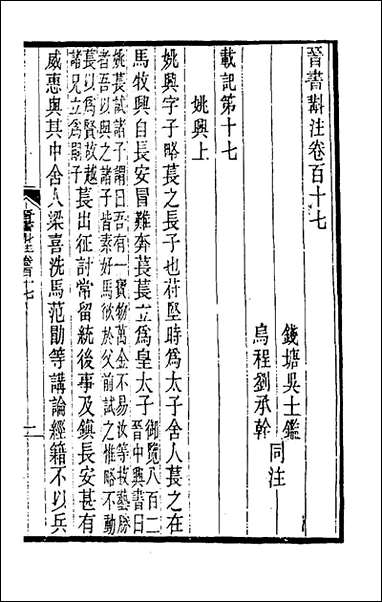 晉書斠注卷百十七
錢塘吳士鑑
烏程劉承幹
同注
載記第十七
姚興上
姚興字子略萇之長子也苻堅時爲太子舍人萇之在
馬牧興自長安冒難奔萇萇立爲皇太子
御覽八百二
晉中興書曰
姚萇試諸子謂曰吾有一寶物萬金不易汝等技藝勝
者吾以與之諸子皆素好馬彼於父前試之惟略不動
萇以爲賢故越
諸兄立爲嗣子
萇出征討常留統後事及鎮長安甚有
威惠與其中舍人梁喜洗馬范勖等講論經籍不以兵
晉書斠注卷百十七
一